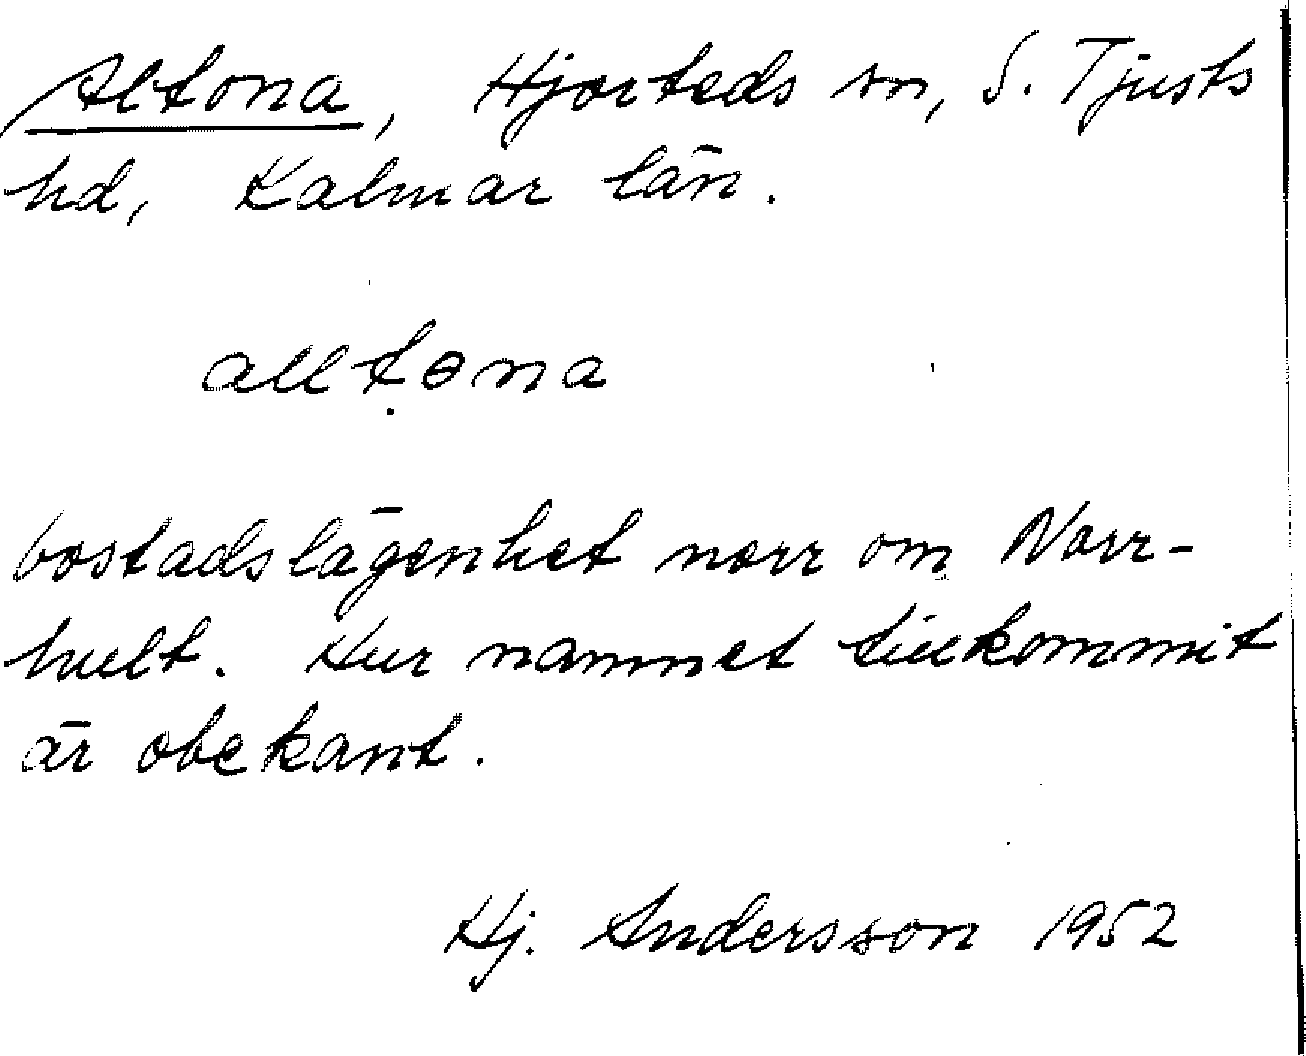 Altona, Hjorteds sn, S. Tjusts
hd, Kalmar län.
alltɵna
bostadslägenhet norr om Norr-
hult. Hur namnet tillkommit
är obekant.
Hj. Andersson 1952